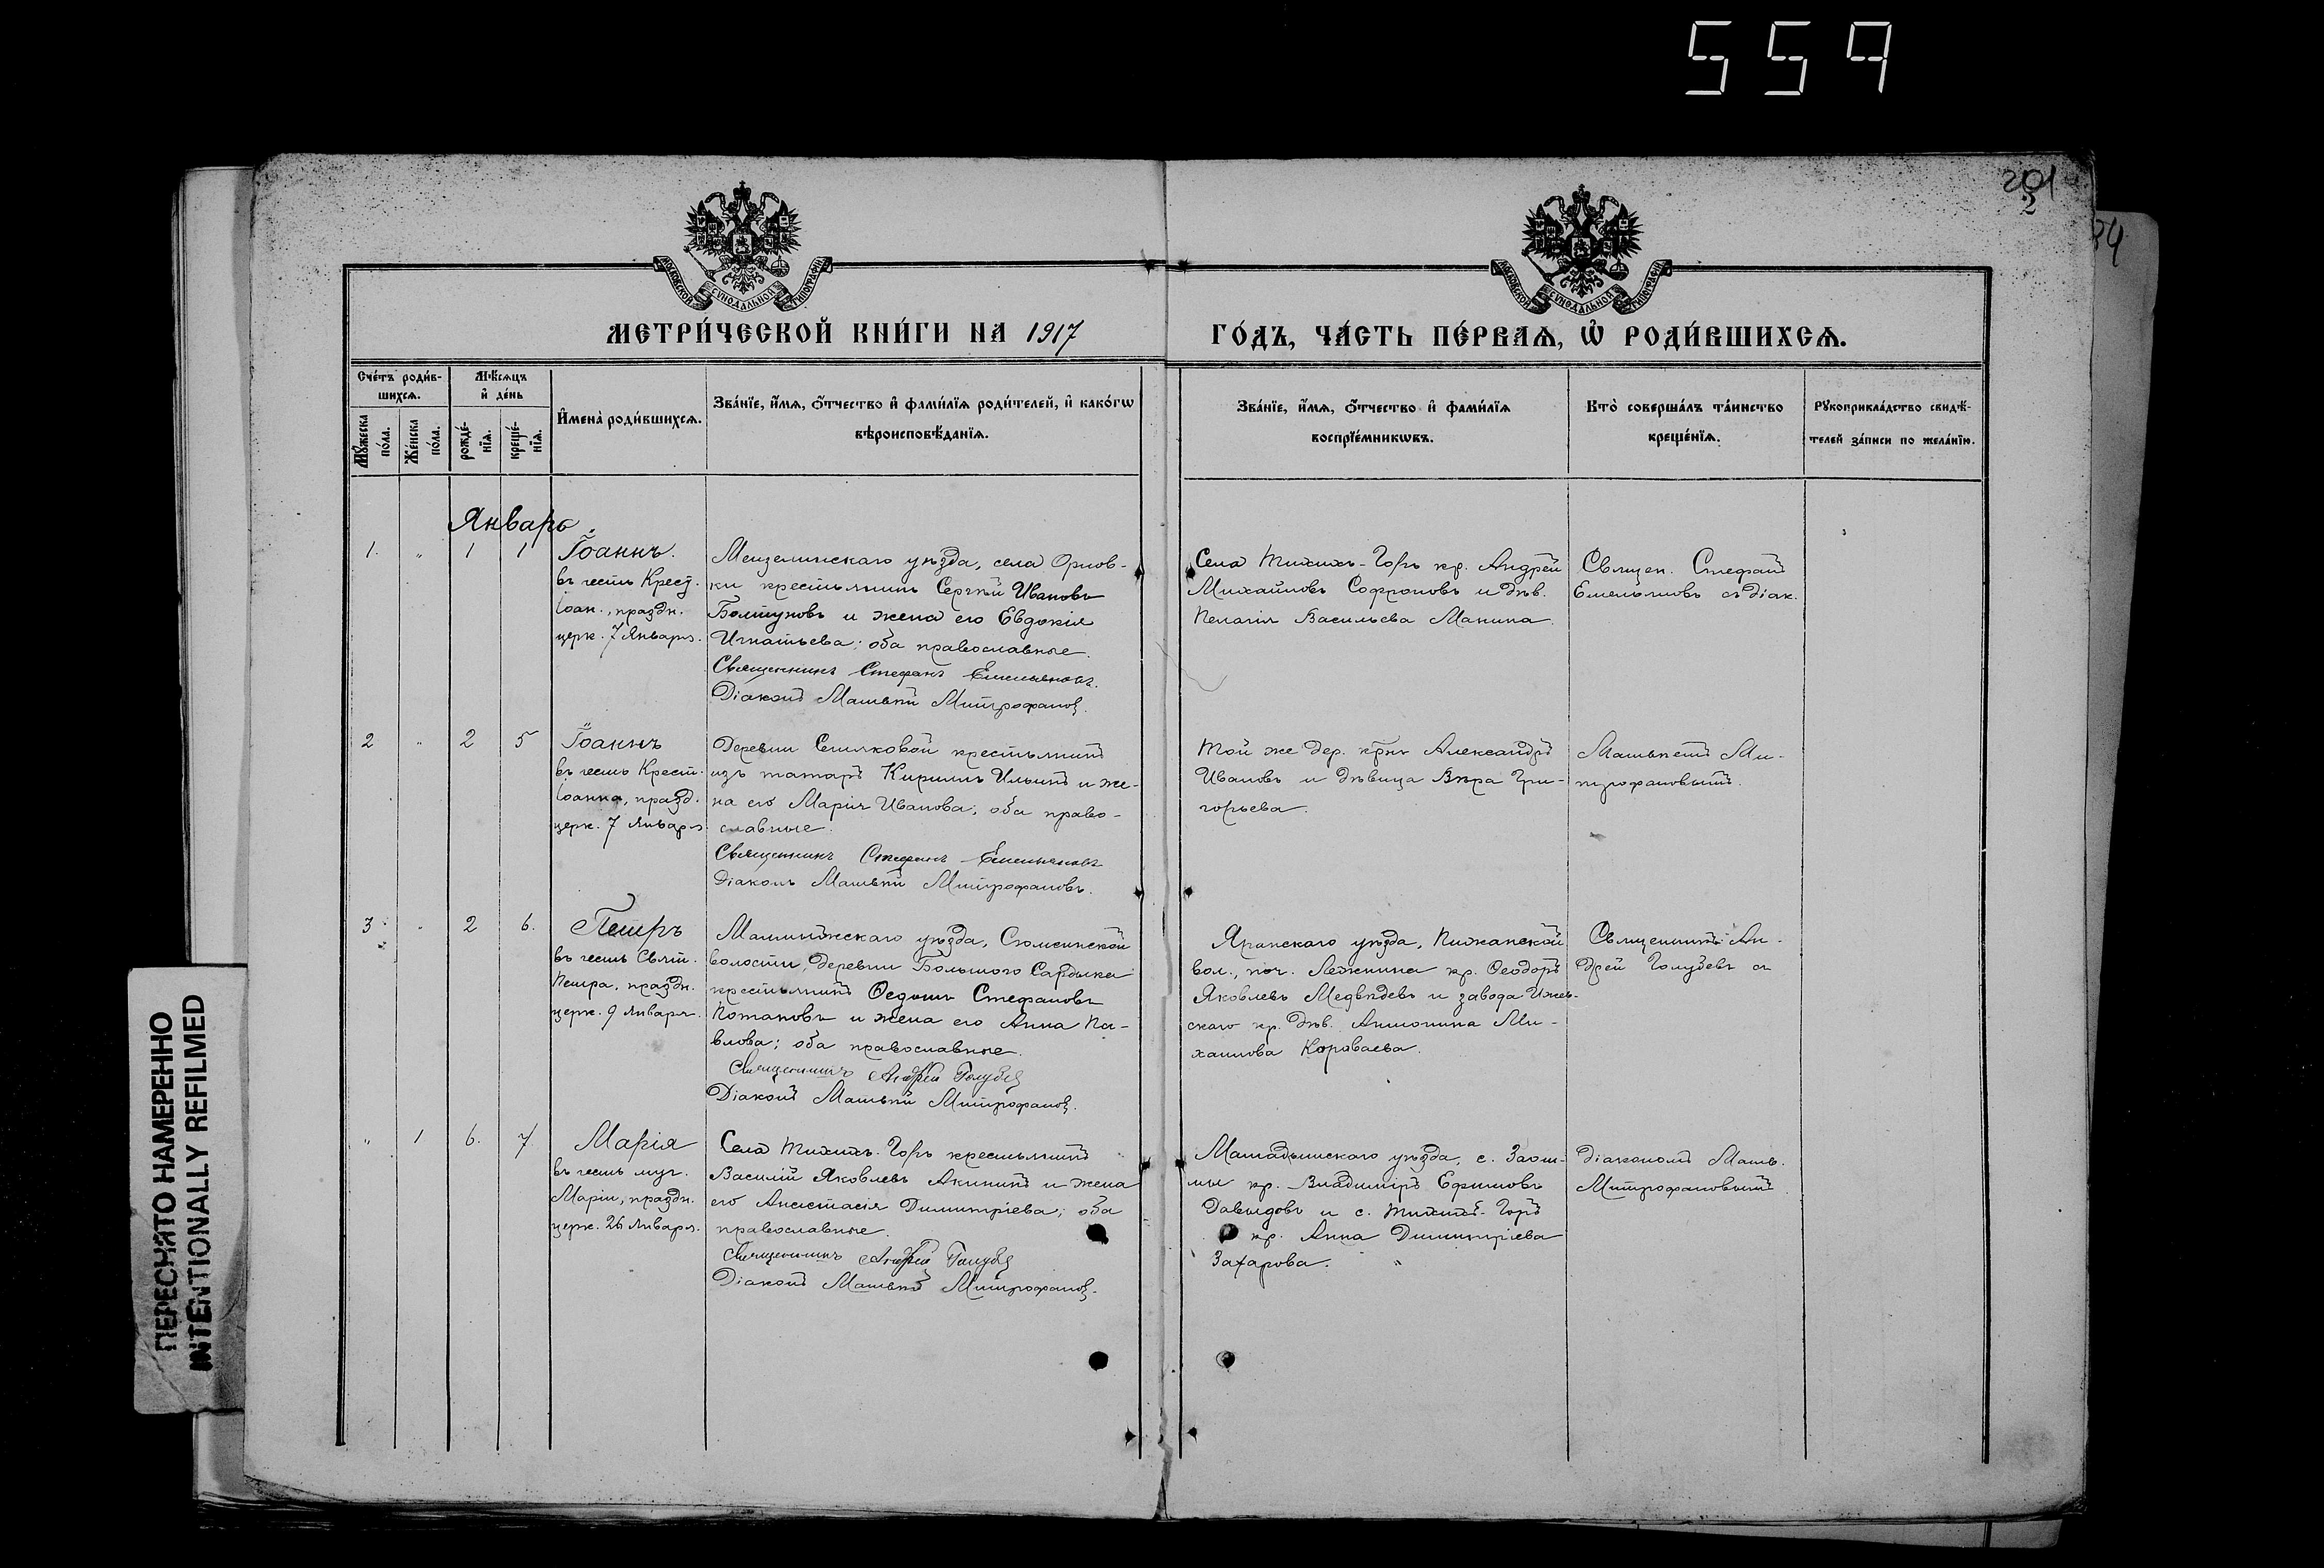 559
201
2
34
МОСКОВСКОЙ СѴНОДАЛЬНОЙ ТИПОГРАФІИ
МОСКОВСКОЙ СѴНОДАЛЬНОЙ ТИПОГРАФІИ
МЕТРИ́ЧЕСКОЙ КНИ́ГИ НА 1917
ГО́ДЪ, ЧА́СТЬ ПЕ́РВАѦ, Ѡ҆ РОДИ́ВШИХСѦ.
Сче́тъ роди́в-
шихсѧ.
Мѣ́сѧцъ
и҆ де́нь
Мꙋ́жеска
по́ла.
Же́нска
по́ла.
рожде́-
нїѧ.
креще́-
нїѧ.
И҆мена̀ роди́вшихсѧ.
Зва́нїе, и҆́мѧ, ѻ҆́тчество и҆ фами́лїѧ роди́телей, и҆ како́гѡ
вѣроисповѣ́данїѧ.
Зва́нїе, и҆́мѧ, ѻ҆́тчество и҆ фами́лїѧ
воспрїе́мникѡвъ.
Кто̀ соверша́лъ та́инство
креще́нїѧ.
Рꙋкоприкла́дство свидѣ́-
телей за́писи по жела́нїю.
Январь
1. " 1 1
Іоаннъ.
въ честь Крест.
Іоан., праздн.
церк. 7 Января.
Мензелинскаго уѣзда, села Орлов-
ки крестьянинъ Сергѣй Ивановъ
Болтуновъ и жена его Евдокія
Игнатьева; оба православные.
Священникъ Стефанъ Емельяновъ.
Діаконъ Матвѣй Митрофановъ.
Села Тихихъ-Горъ кр. Андрей
Михайловъ Софроновъ и дѣв.
Пелагія Васильева Манина.
Священ. Стефанъ
Емельяновъ съ діак.
2 " 2 5
Іоаннъ
въ честь Крест.
Іоанна, празд.
церк. 7 Января
Деревни Сетяковой крестьянинъ
изъ татаръ Кириллъ Ильинъ и же-
на его Марія Иванова; оба право-
славные.
Священникъ Стефанъ Емельяновъ
Діаконъ Матвѣй Митрофановъ.
Той же дер. кр-нъ Александръ
Ивановъ и дѣвица Вѣра Гри-
горьева.
Матвѣемъ Ми-
трофановымъ.
3 " 2 6.
Петръ
въ честь Свят.
Петра, праздн.
церк. 9 Января.
Малмыжскаго уѣзда, Сюмсинской
волости, деревни Большого Сардыка
крестьянинъ Ѳедотъ Стефановъ
Потаповъ и жена его Анна Па-
влова; оба православные.
Священникъ Андрей Голубевъ
Діаконъ Матвѣй Митрофановъ.
Яранскаго уѣзда, Пижанской
вол., поч. Лежнина кр. Ѳеодоръ
Яковлевъ Медвѣдевъ и завода Ижев-
скаго кр. дѣв. Антонина Ми-
хаилова Короваева.
Священникъ Ан-
дрей Голубевъ съ
" 1 6. 7
Марія
въ честь муч.
Маріи, праздн.
церк. 26 Января.
Села Тихихъ-Горъ крестьянинъ
Василій Яковлевъ Акининъ и жена
его Анастасія Димитріева; оба
православные.
Священникъ Андрей Голубевъ
Діаконъ Матвѣй Митрофановъ.
Мамадышскаго уѣзда, с.
кр. Владиміръ Ефимовъ
Давыдовъ и с. Тихихъ-Горъ
кр. Анна Димитріева
Захарова.
Діакономъ Матв.
Митрофановымъ.
ПЕРЕСНЯТО НАМЕРЕННО
INTENTIONALLY REFILMED